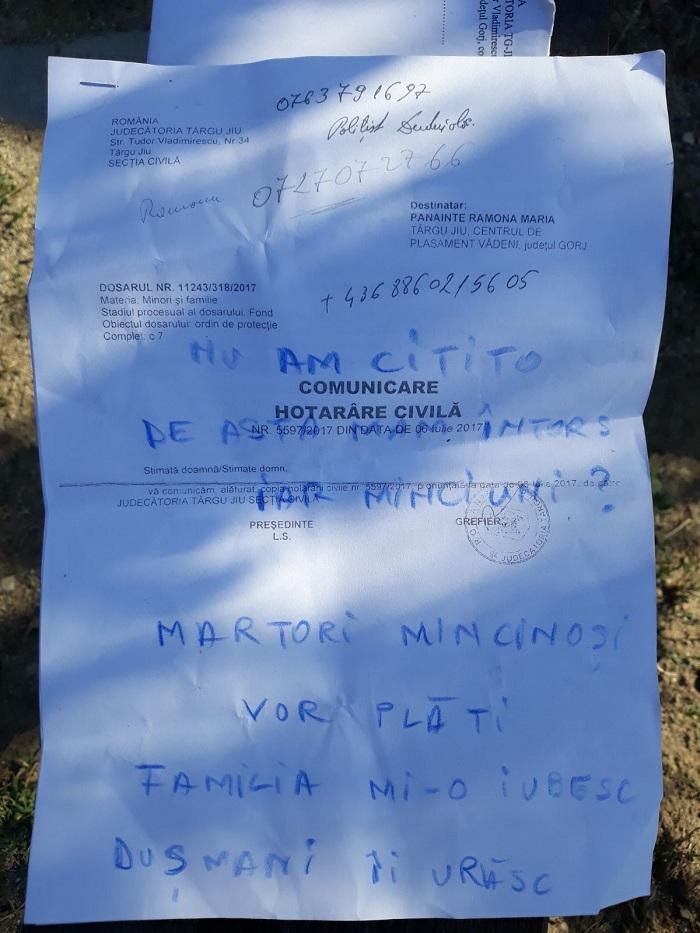 A
TORIA TG-JI
r Vladimirescu
dețul Gorj, co
0763791697
Polițist
ROMÂNIA
JUDECĂTORIA TÂRGU JIU
Str. Tudor Vladimirescu, Nr.34
Târgu Jiu
SECȚIA CIVILĂ
Ramona 0727072766
Destinatar:
PANAINTE RAMONA MARIA
TÂRGU JIU, CENTRUL DE
PLASAMENT VĂDENI, județul GORJ
DOSARUL NR. 11243/318/2017
Materia: Minori și familie
Stadiul procesual al dosarului: Fond
Obiectul dosarului: ordin de protecție
Complet: c 7
+4368860215605
NU AM CITITO
COMUNICARE
HOTARÂRE CIVILĂ
NR. 5597/2017 DIN DATA DE 06 iulie 2017
DE ASTA ÎNTORS
Stimată doamnă/Stimate domn,
vă comunicăm, alăturat, copia hotărârii civile nr. 5597/2017, pronunțată la data de 06 iulie 2017, de către
JUDECĂTORIA TÂRGU JIU SECȚIA CIVILĂ
IAR MINCIUNI?
PREȘEDINTE
L.S.
GREFIER,
JUDECĂTORIA
MARTORI MINCINOȘI
VOR PLĂTI
FAMILIA MI-O IUBESC
DUȘMANI ÎI URĂSC